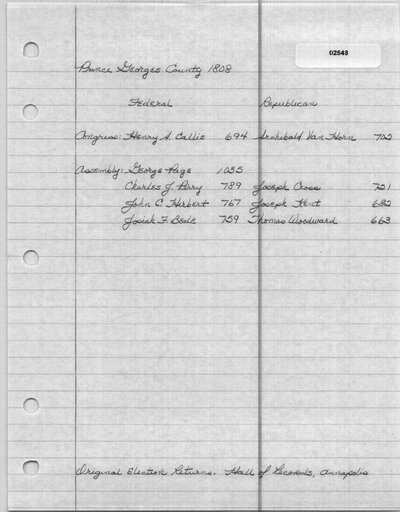 02548
Prince Georges County 1808
Federal Republican
Congress: Henry A. Callis 694 Archibald Van Horn 702
Assembly: George Page 1035
Charles J. Perry 789 Joseph Cross 721
John C. Herbert 767 Joseph Kent 682
Josiah F. Beds 759 Thomas Woodward 663
Original Election Returns. Hall of Records, Annapolis